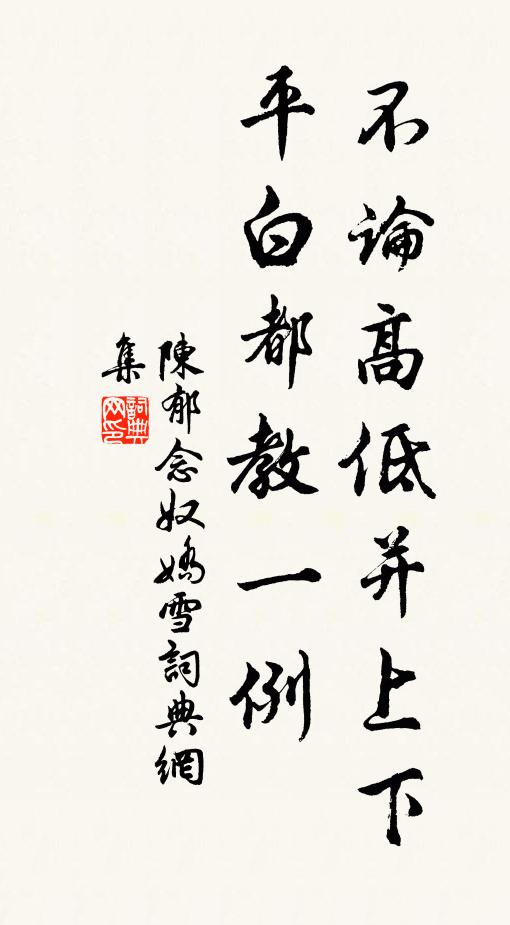 不論高低并上下
平白都教一例
陳郁念奴嬌雪詞典網
集
詞典
网印